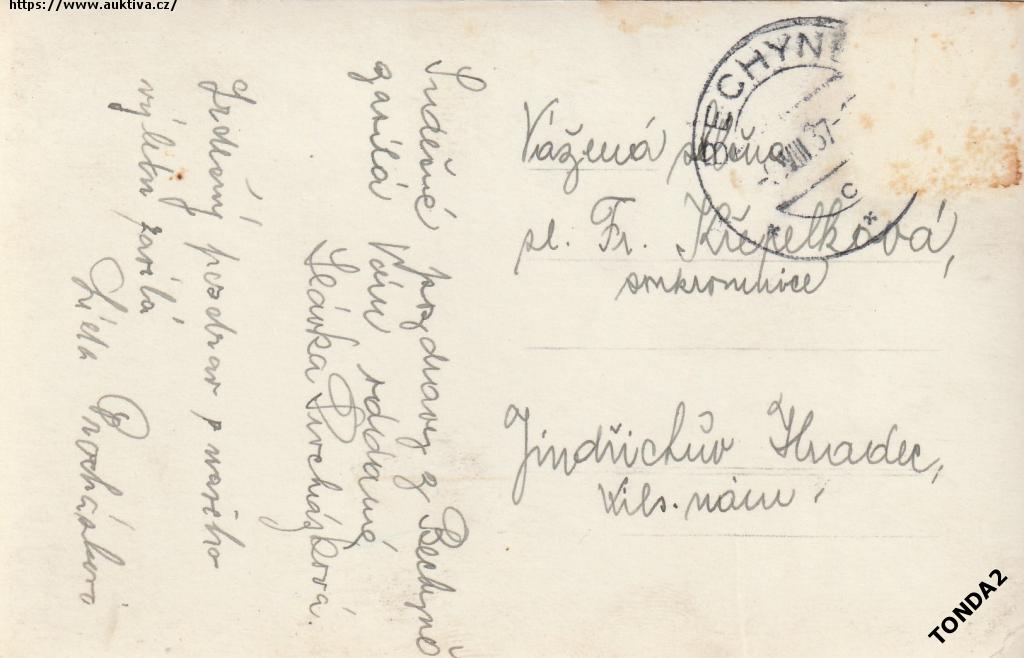 https://www.auktiva.cz/
Srdečné pozdravy z Bechyně
zasílá Vám oddaná
Slávka Procházková.
Srdečný pozdrav z našeho
výletu zasílá
Procházková
BECHYNĚ
VIII 37
C
Vážená slečna
sl. Fr. Křepelková,
soukromnice
Jindřichův Hradec,
Wils. nám.
TONDA2